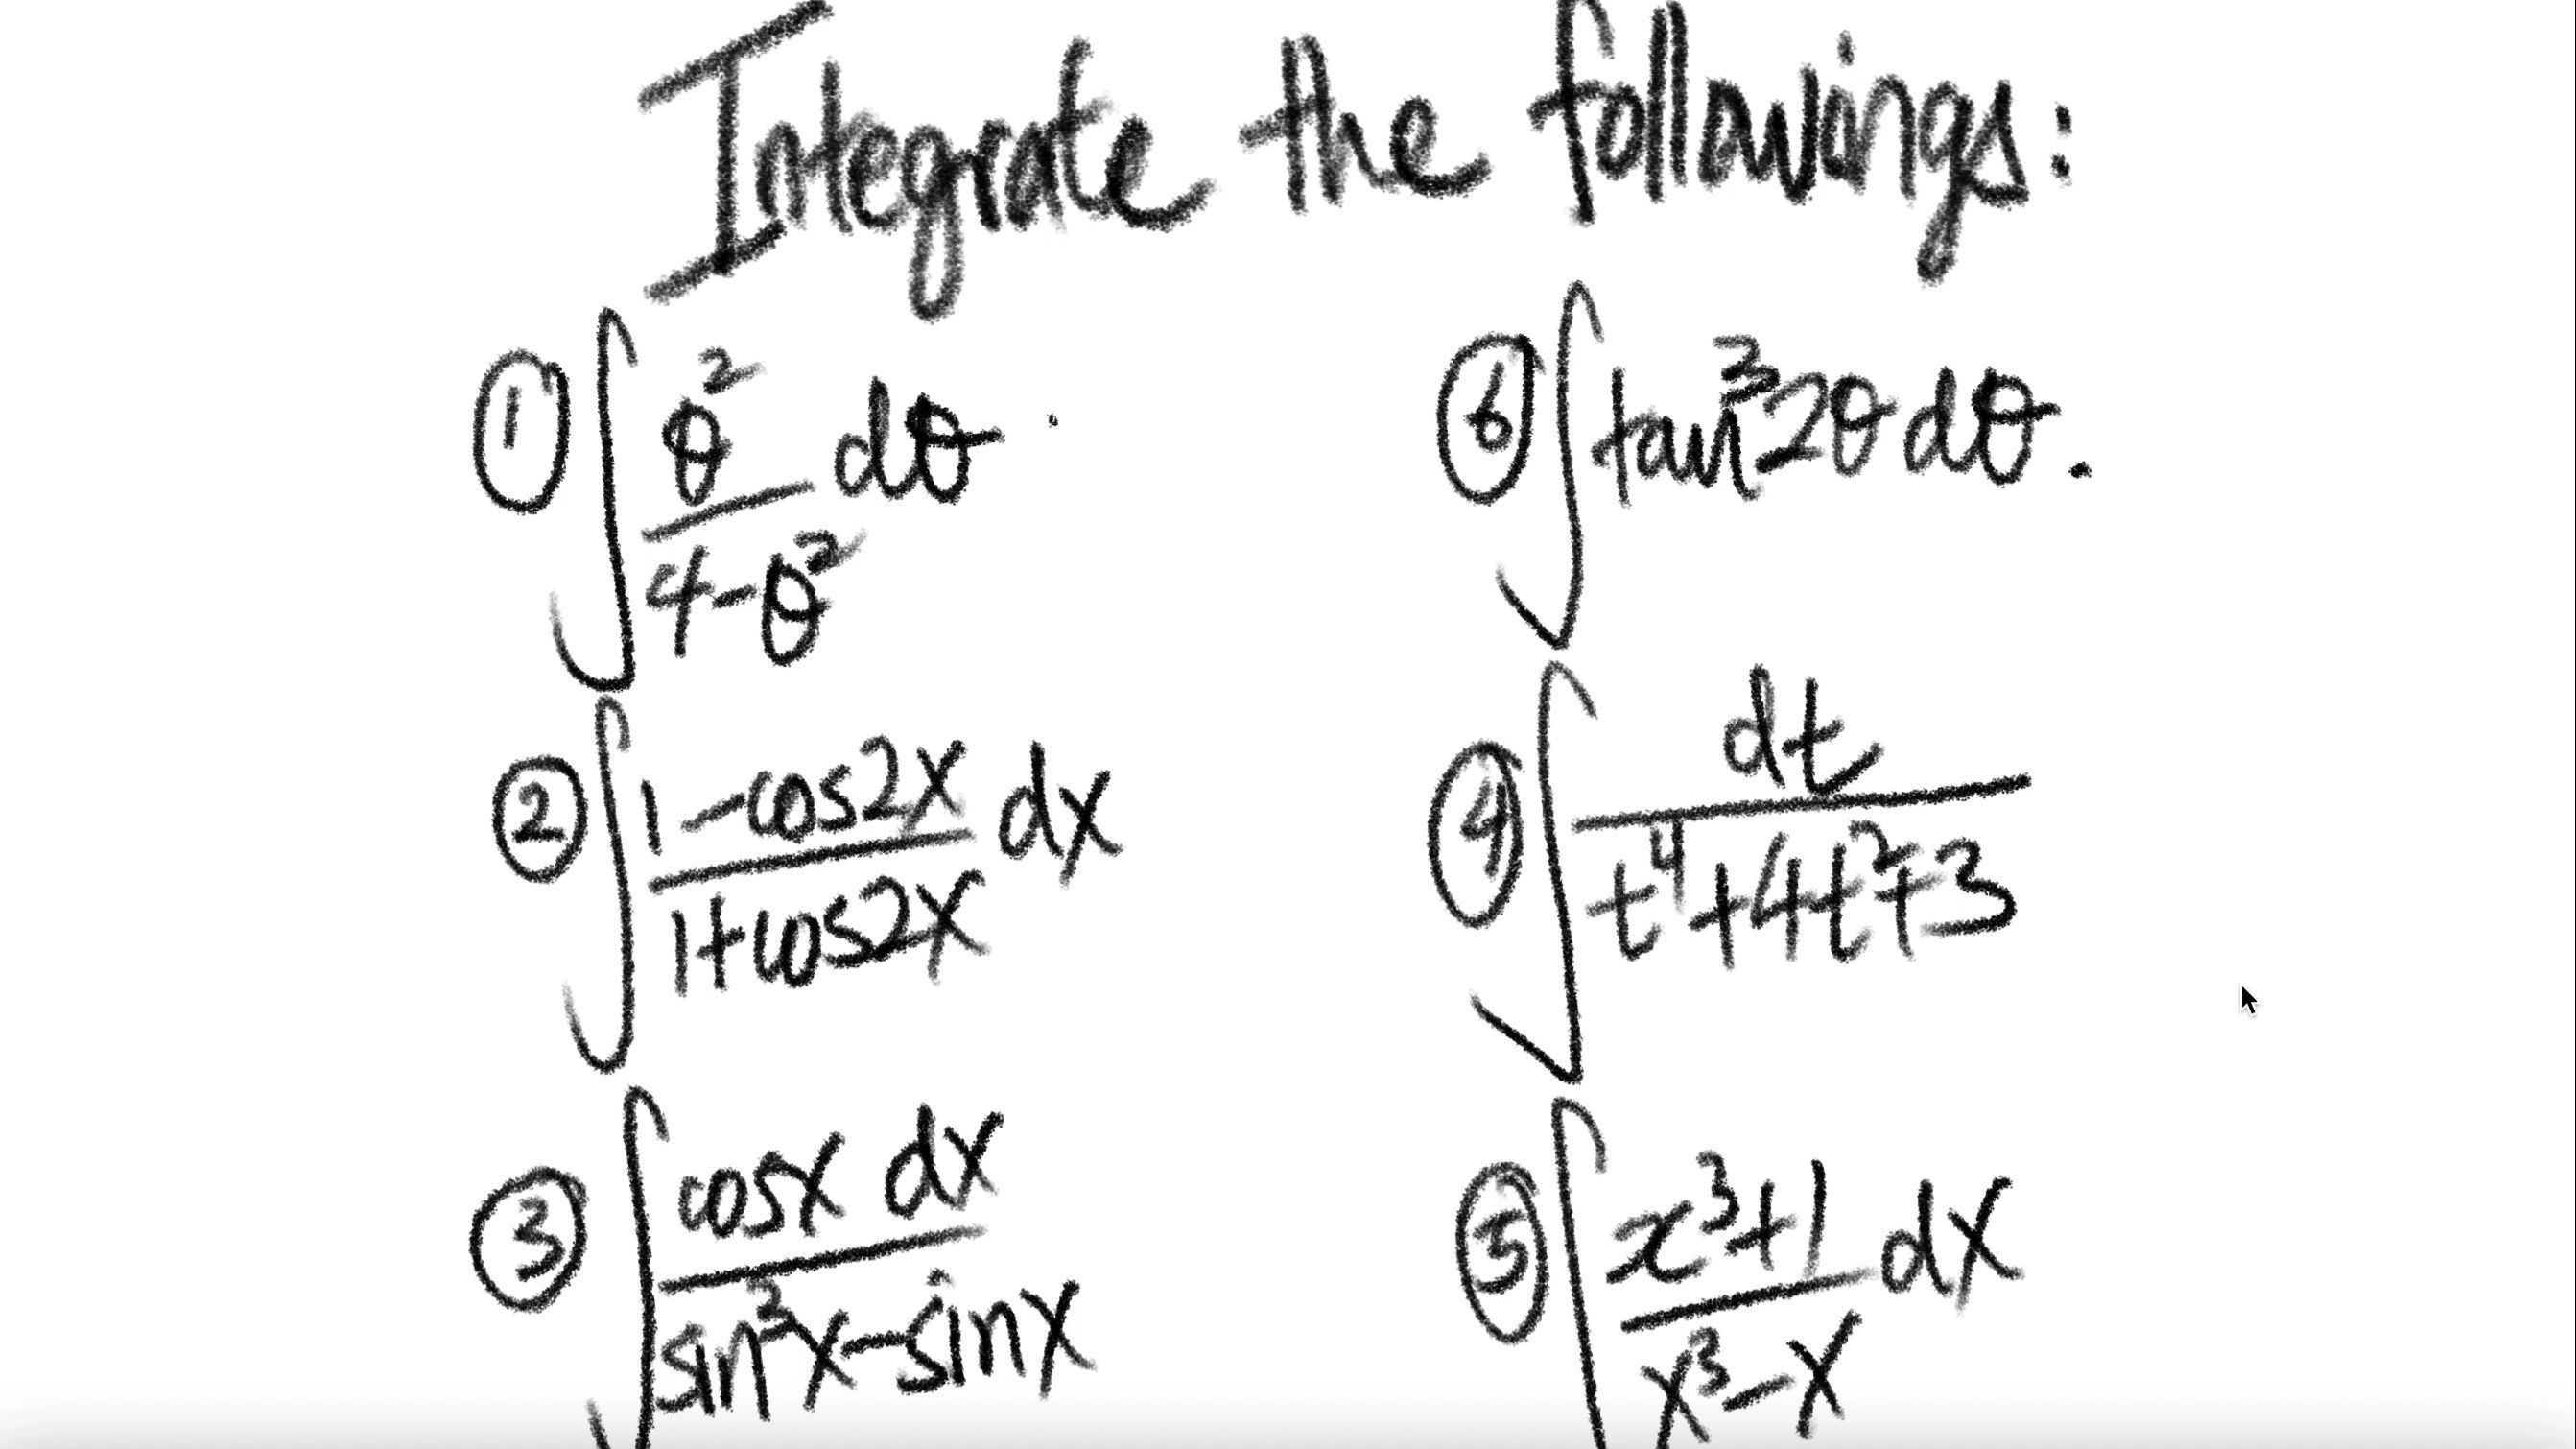 Integrate the followings:
① ∫ θ²/(4-θ²) dθ.
② ∫ (1-cos2x)/(1+cos2x) dx
③ ∫ cosx dx/(sin³x-sinx)
⑥ ∫ tan³2θ dθ.
④ ∫ dt/(t⁴+4t²+3)
⑤ ∫ (x³+1)/(x³-x) dx